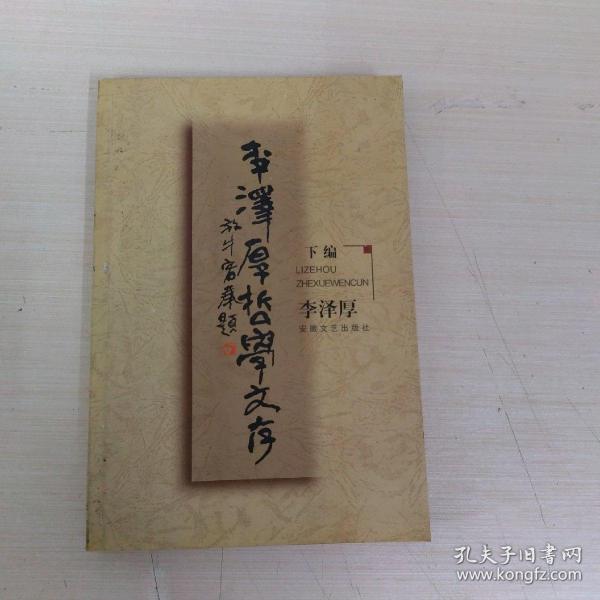 李澤厚哲學文存
下编
LIZEHOU
ZHEXUEWENCUN
李泽厚
安徽文艺出版社
孔夫子旧书网
www.kongfz.com